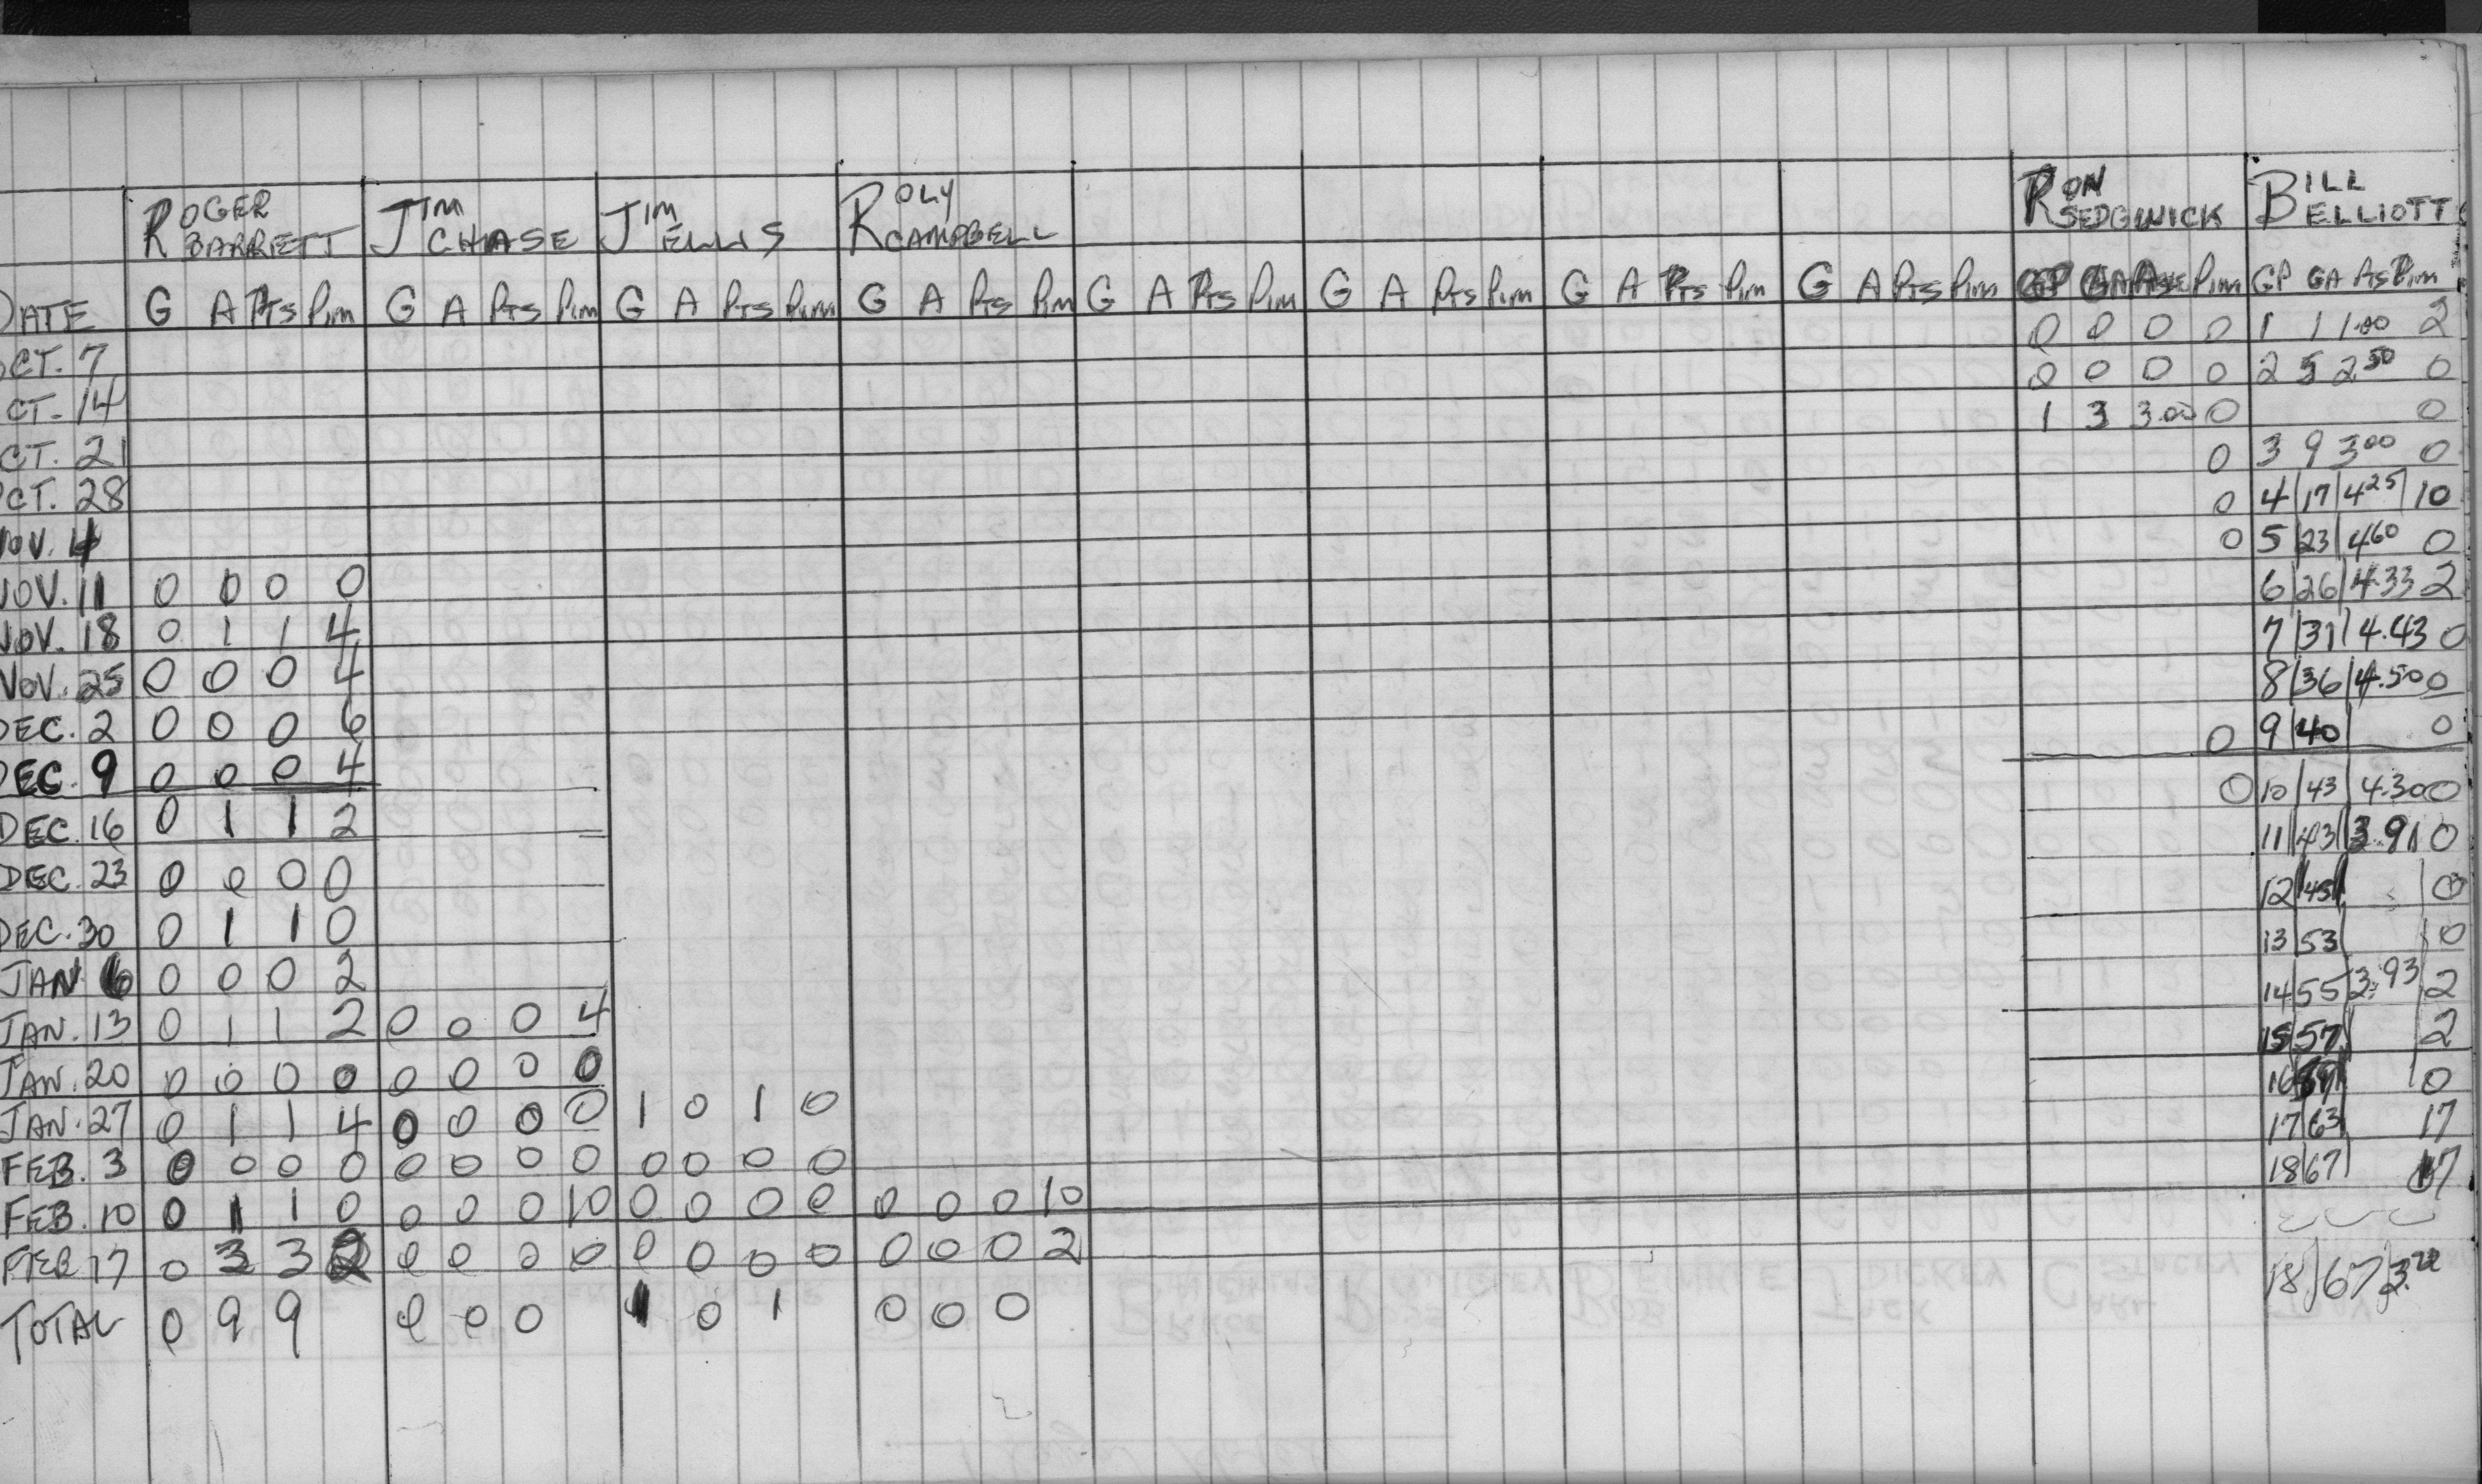 ROGER BARRETT JIM CHASE JIM ELLIS ROLY CAMPBELL RON SEDGWICK BILL ELLIOTT
DATE G A PTS PIM G A PTS PIM G A PTS PIM G A PTS PIM G A PTS PIM G A PTS PIM G A PTS PIM G A PTS PIM GP GA AVE PIM GP GA PTS PIM
OCT. 7 0 0 0 0 1 1 1.00 2
OCT. 14 0 0 0 0 2 5 2.50 0
OCT. 21 1 3 3.00 0 0
OCT. 28 0 3 9 3.00 0
NOV. 4 0 4 17 4.25 10
NOV. 11 0 0 0 0 0 5 23 4.60 0
NOV. 18 0 1 1 4 6 26 4.33 2
NOV. 25 0 0 0 4 7 31 4.43 0
DEC. 2 0 0 0 6 8 36 4.50 0
DEC. 9 0 0 0 4 0 9 40 0
DEC. 16 0 1 1 2 0 10 43 4.30 0
DEC. 23 0 0 0 0 11 43 3.91 0
DEC. 30 0 1 1 0 12 45 0
JAN 6 0 0 0 2 13 53 0
JAN. 13 0 1 1 2 0 0 0 4 14 55 3.93 2
JAN. 20 0 0 0 0 0 0 0 0 15 57 2
JAN. 27 0 1 1 4 0 0 0 0 1 0 1 0 16 0
FEB. 3 0 0 0 0 0 0 0 0 0 0 0 0 17 63 17
FEB. 10 0 1 1 0 0 0 0 10 0 0 0 0 0 0 0 10 18 67 17
FEB 17 0 3 3 2 0 0 0 0 0 0 0 0 0 0 0 2
TOTAL 0 9 9 0 0 0 1 0 1 0 0 0 18 67 3.72